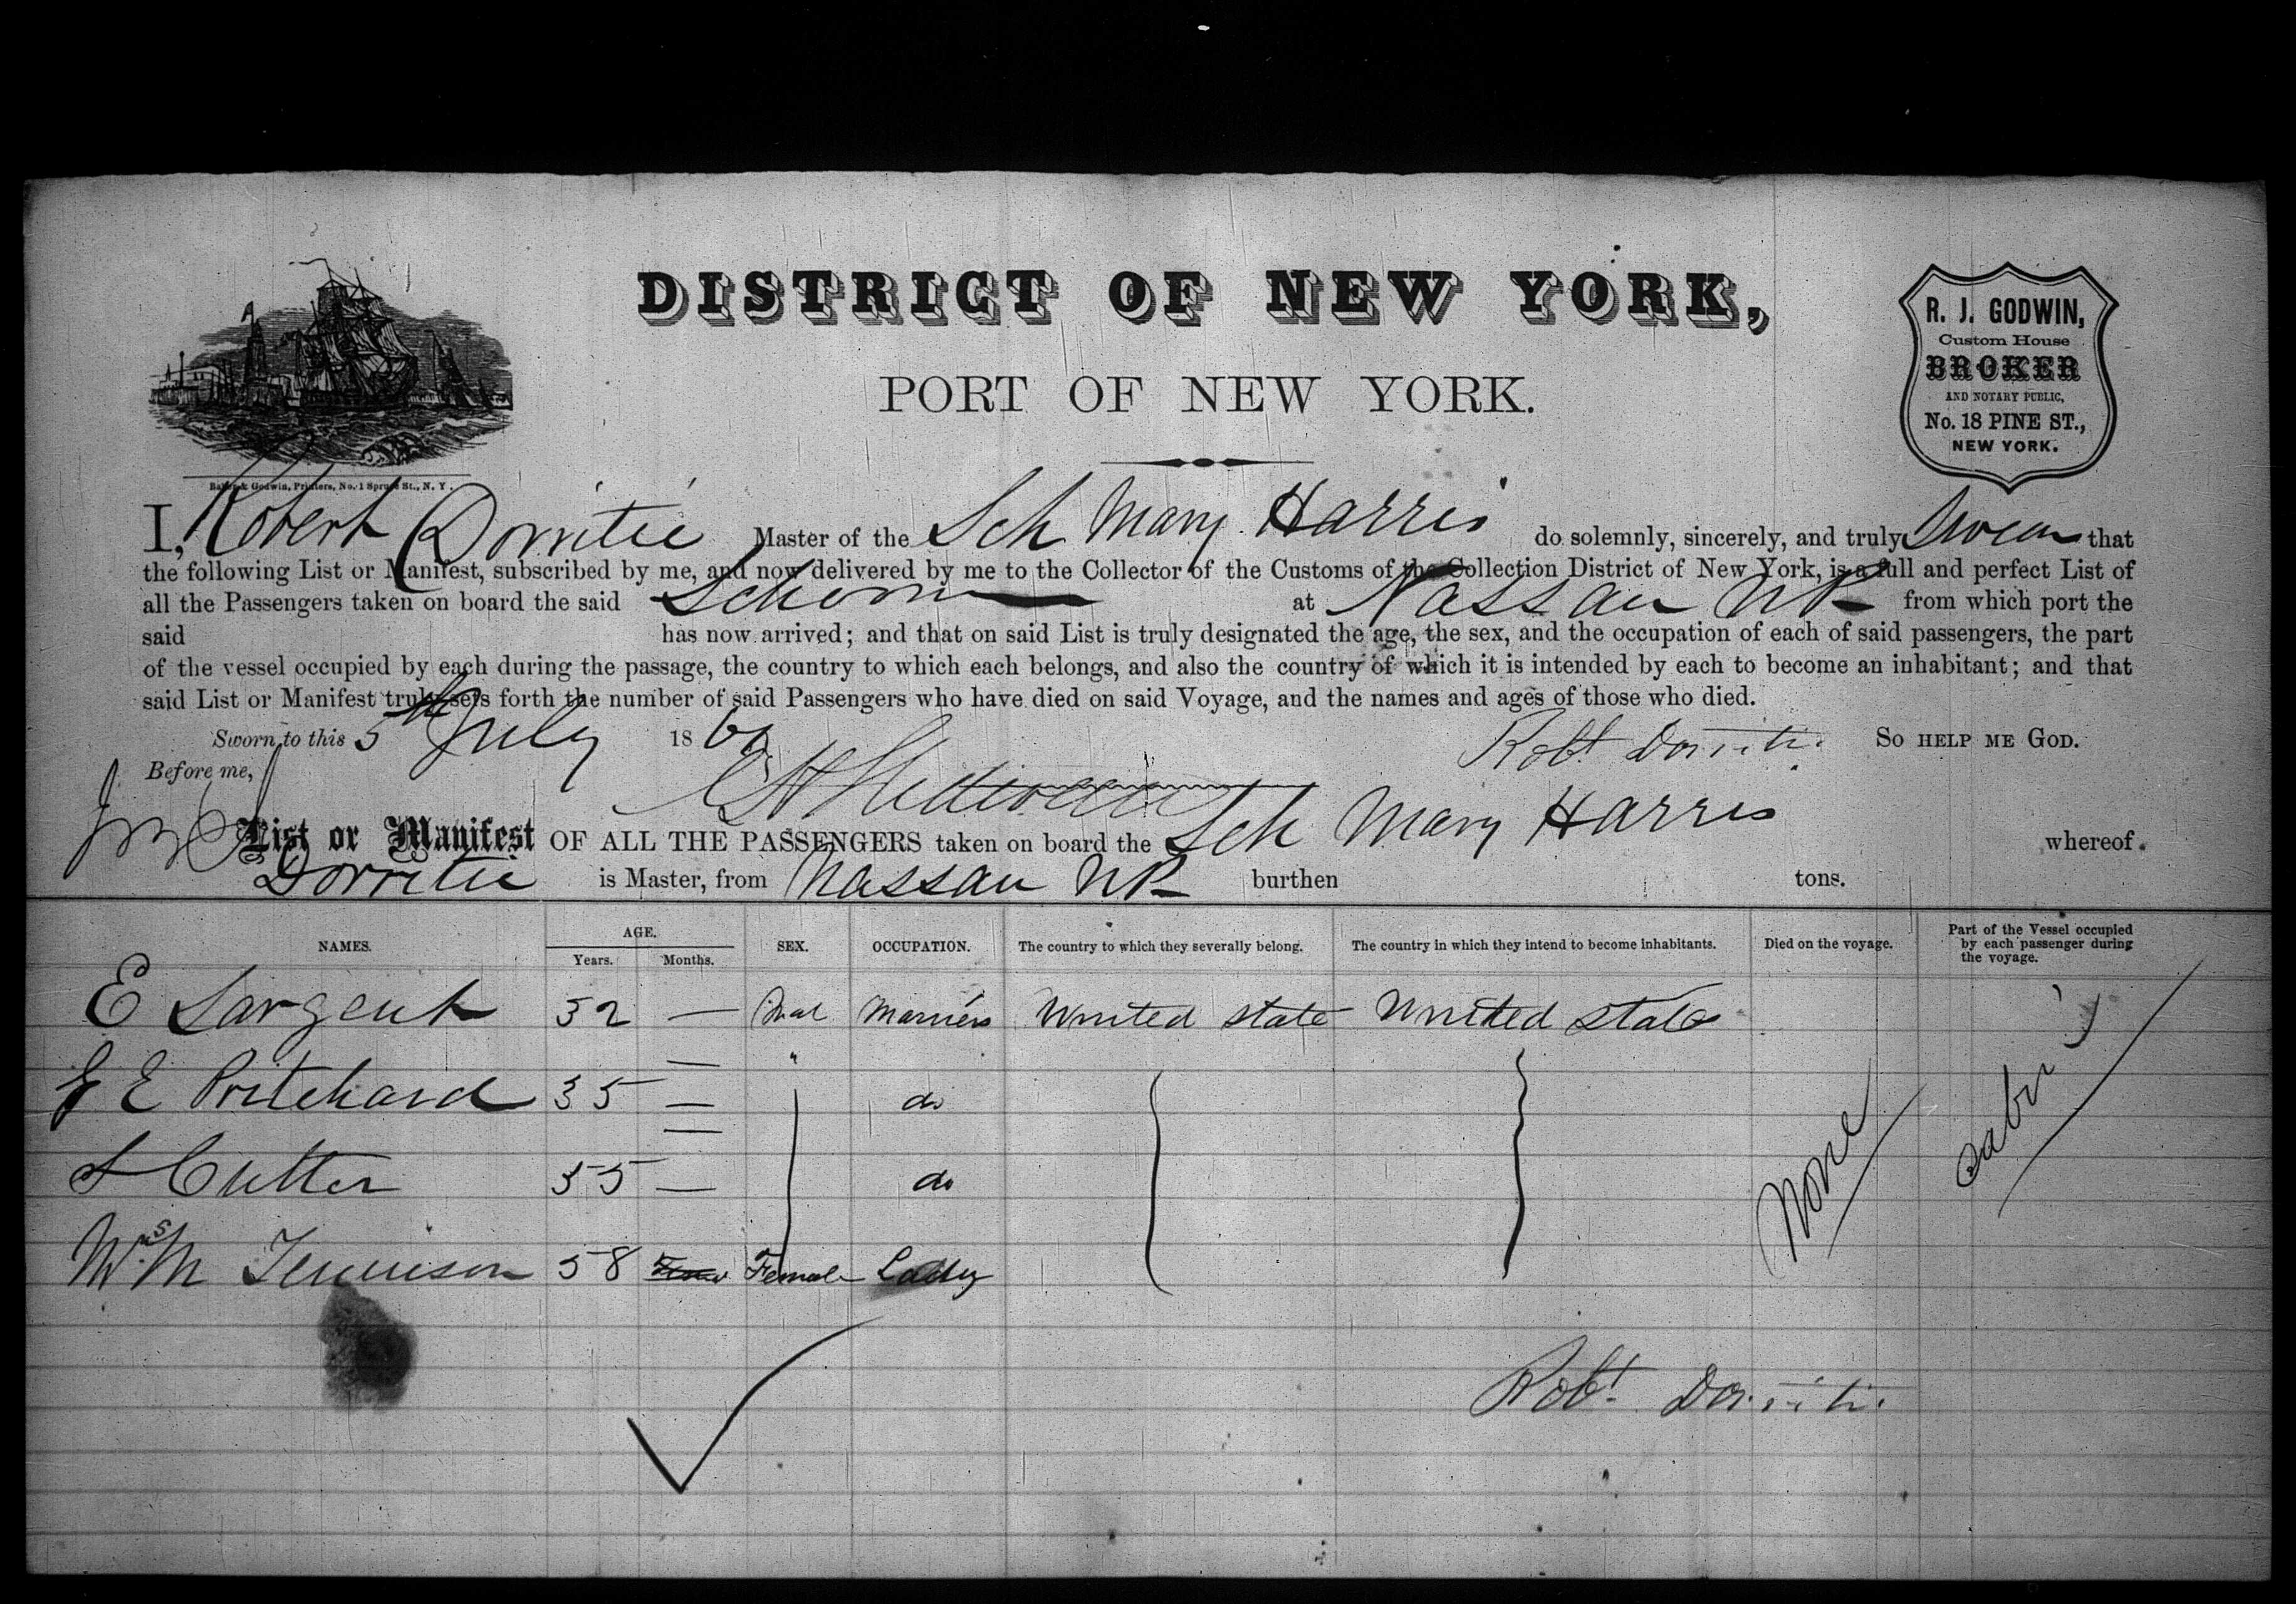 DISTRICT OF NEW YORK,
PORT OF NEW YORK.
R. J. GODWIN,
Custom House
BROKER
AND NOTARY PUBLIC,
No. 18 PINE ST.,
NEW YORK.
Baker & Godwin, Printers, No. 1 Spruce St., N. Y.
I, Robert Dorritie Master of the Sch Mary Harris do solemnly, sincerely, and truly Swear that
the following List or Manifest, subscribed by me, and now delivered by me to the Collector of the Customs of the Collection District of New York, is a full and perfect List of
all the Passengers taken on board the said Schooner at Nassau NP from which port the
said has now arrived; and that on said List is truly designated the age, the sex, and the occupation of each of said passengers, the part
of the vessel occupied by each during the passage, the country to which each belongs, and also the country of which it is intended by each to become an inhabitant; and that
said List or Manifest truly sets forth the number of said Passengers who have died on said Voyage, and the names and ages of those who died.
Sworn to this 5th July 18 Robt Dorritie SO HELP ME GOD.
Before me,
List or Manifest OF ALL THE PASSENGERS taken on board the Sch Mary Harris whereof
Dorritie is Master, from Nassau NP burthen tons.
NAMES. AGE. Years. Months. SEX. OCCUPATION. The country to which they severally belong. The country in which they intend to become inhabitants. Died on the voyage. Part of the Vessel occupied by each passenger during the voyage.
E Sargent 32 — Mal Marriers United State United States
E Pritchard 35 — " do
Cutter 35 — do
None Cabin
Mrs M Tennison 58 Female Lady
Robt Dorritie